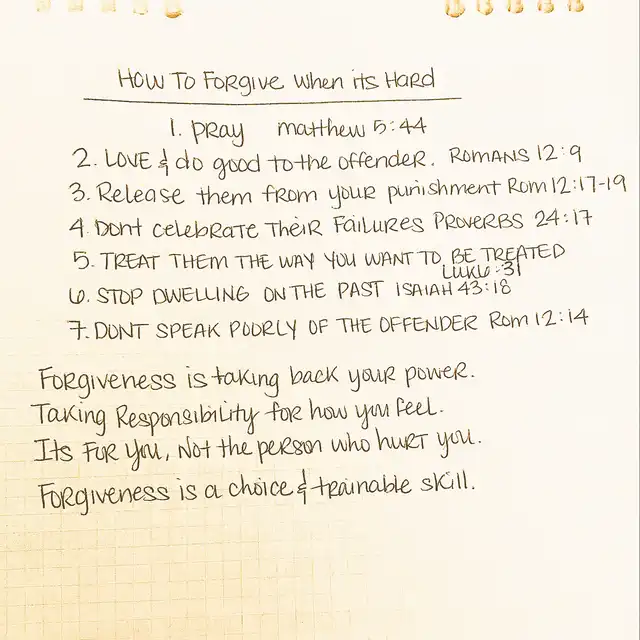 HOW TO FORGIVE WHEN ITS HARD
1. PRAY matthew 5:44
2. LOVE & do good to the offender. ROMANS 12:9
3. Release them from your punishment Rom 12:17-19
4. Dont celebrate their Failures PROVERBS 24:17
5. TREAT THEM THE WAY YOU WANT TO BE TREATED
LUKE 6:31
6. STOP DWELLING ON THE PAST ISAIAH 43:18
7. DONT SPEAK POORLY OF THE OFFENDER Rom 12:14
Forgiveness is taking back your power.
Taking Responsibility for how you feel.
Its For You, Not the person who hurt you.
Forgiveness is a choice & trainable skill.